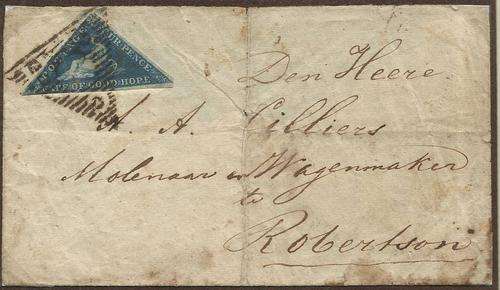 POSTAGE FOUR PENCE
CAPE OF GOOD HOPE
Den Heere
A. A. Cilliers
Molenaar en Wagenmaker
te
Robertson